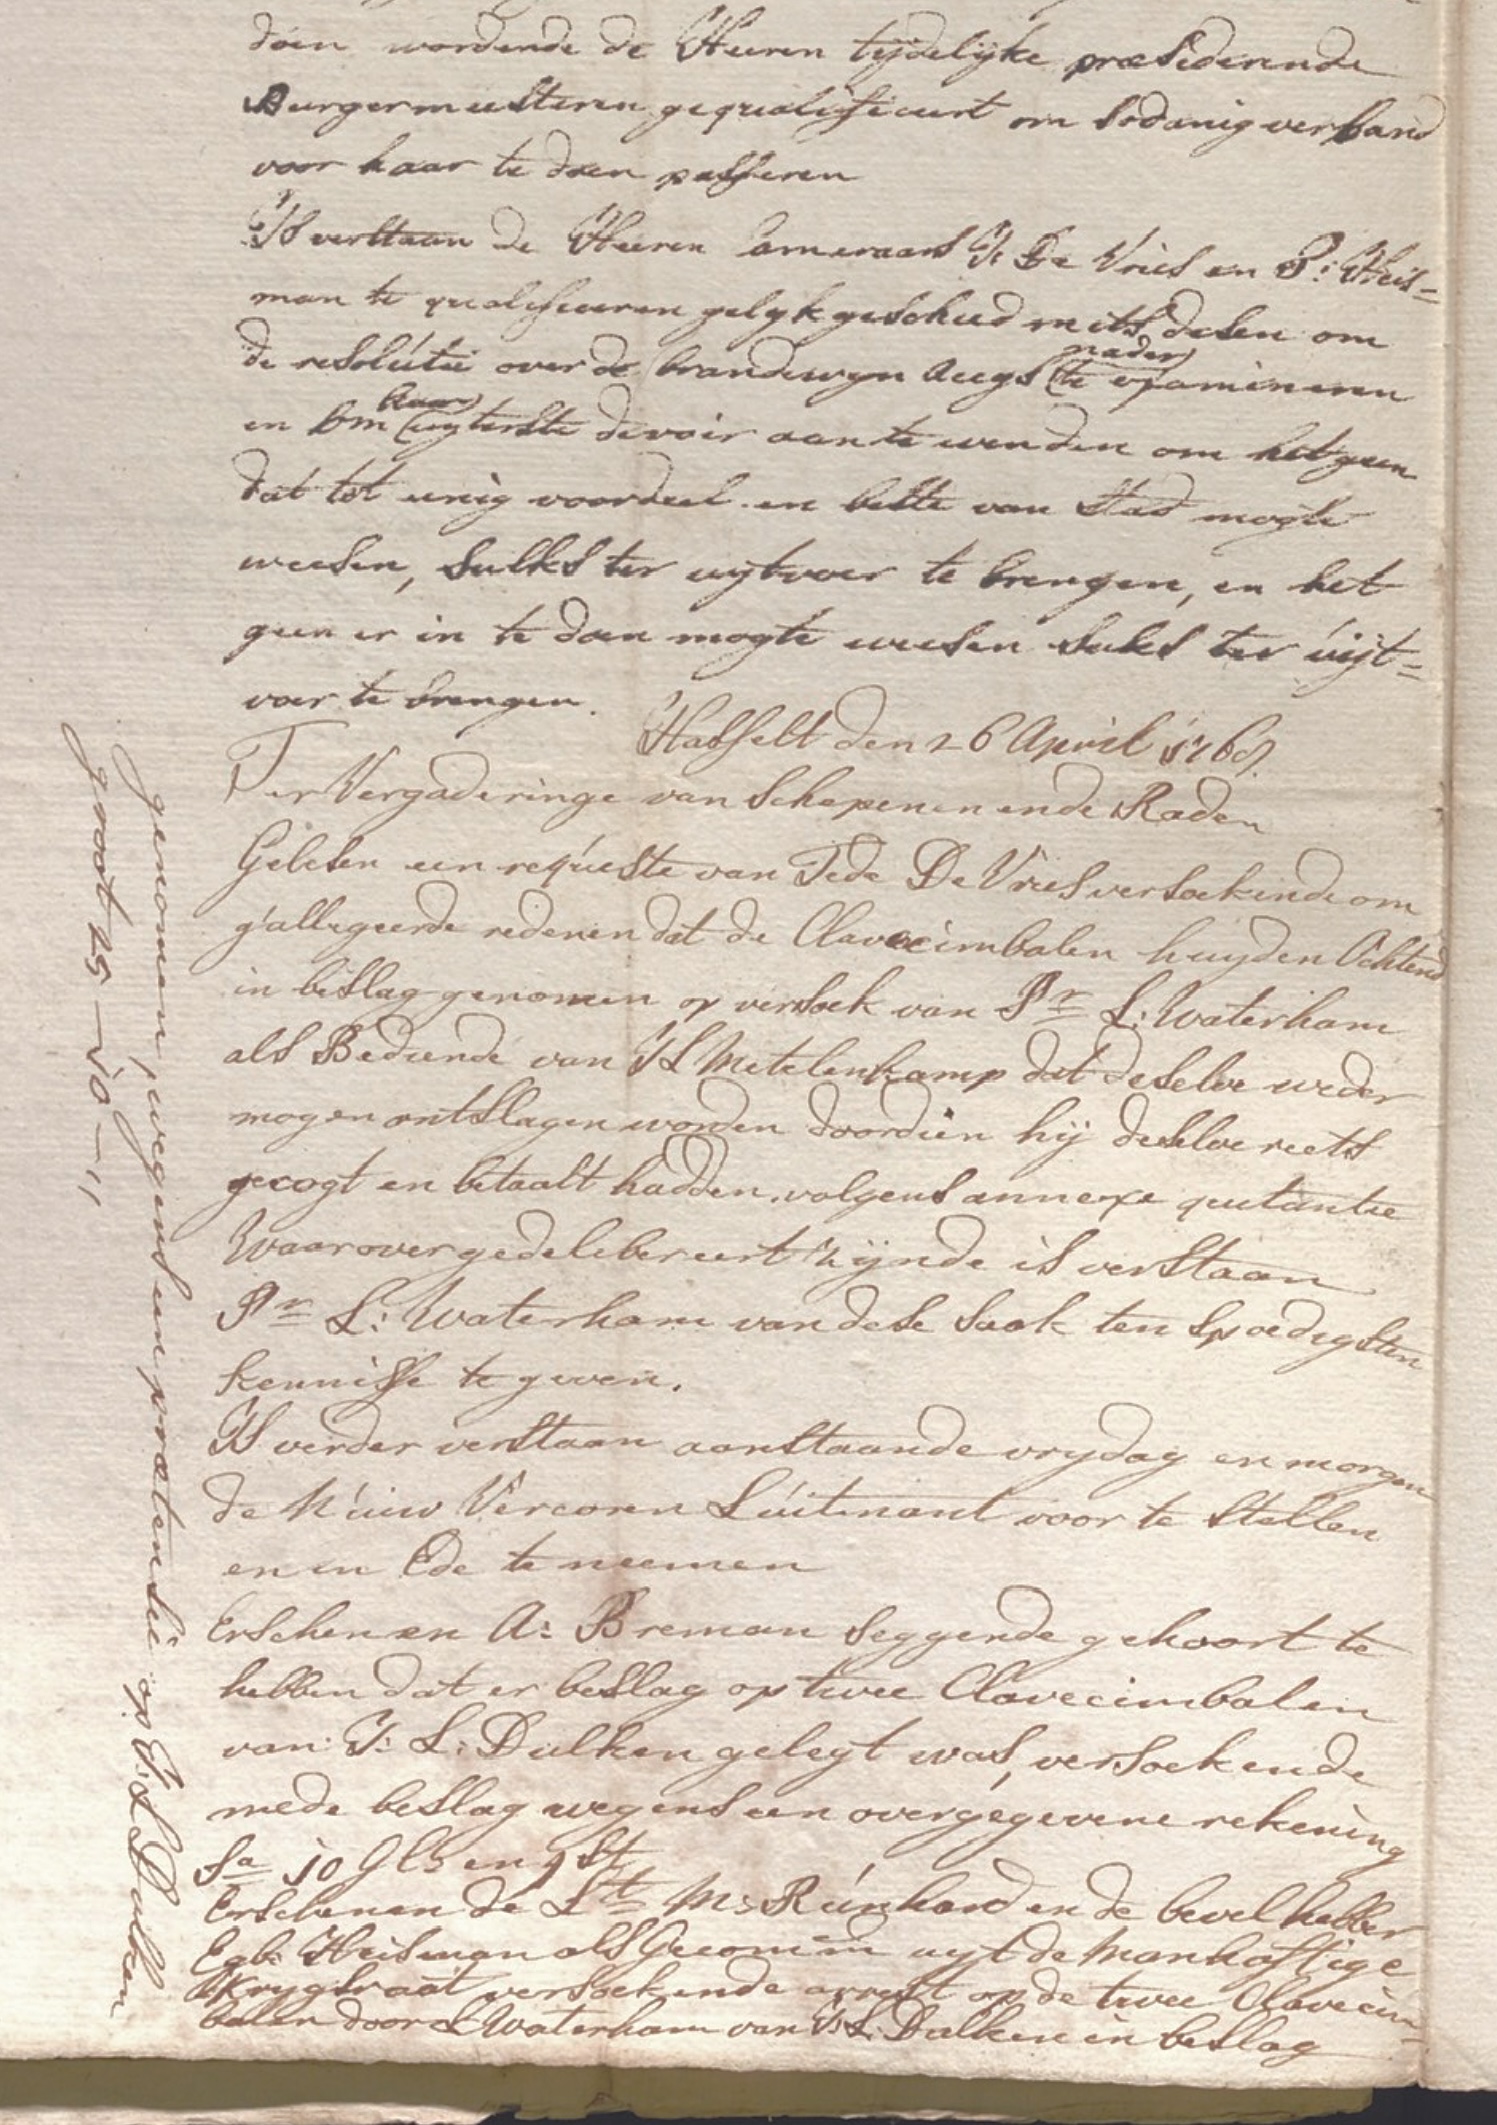 doen wordende de Heeren tijdelijke præsiderende
Burgermeesteren gequalificeert om sodanig verband
voor haar te doen passeren
Is verstaan de Heeren Cameraars I: De Vries en P: Heis=
man te qualificeeren gelyk geschied mits desen om
de resolutie over de brandewyn Accys (te nader) examineren
en om (haar) uyterste devoir aan te wenden om het geen
dat tot enig voordeel en beste van Stad mogte
weesen, sulks ter uytvoer te brengen, en het
geen er in te doen mogte weesen sulks ter uijt=
voer te brengen.
Hasselt den 26 April 1769.
Ter Vergaderinge van Schepenen ende Raden
Gelesen een requeste van Tede De Vries versoekende om
g'allegeerde redenen dat de Clavecimbalen huyden Ochtend
in beslag genomen op versoek van Pr L: Waterham
als Bediende van IS Metelenkamp dat deselve weder
mogen ontslagen worden doordien hij deselve reets
gecogt en betaalt hadden volgens annexe quitantie
Waar over gedelebereert zijnde is verstaan
Pr L: Waterham van dese saak ten spoedigsten
kennisse te geven.
Is verder verstaan aanstaande vrydag en morgen
de Nieuw Vercoren Luitnant voor te stellen
en in Ede te neemen
Erschenen A: Breman seggende gehoort te
hebben dat er beslag op twee Clavecimbalen
van I: L: Dulken gelegt was, versoekende
mede beslag wegens een overgegevene rekening
Sa 10 Gls en 9 St
Erschenen de Lt M: Reinhard en de bevelhebber
Egb: Heisman als Gecomm uyt de Manhaftige
Krygsraat versoekende arrest op de twee Clavecim=
balen door L Waterham van I: L: Dulken in beslag
genomen, wegens een prætensie op I: L Dulken
groot 25 – 10 – "